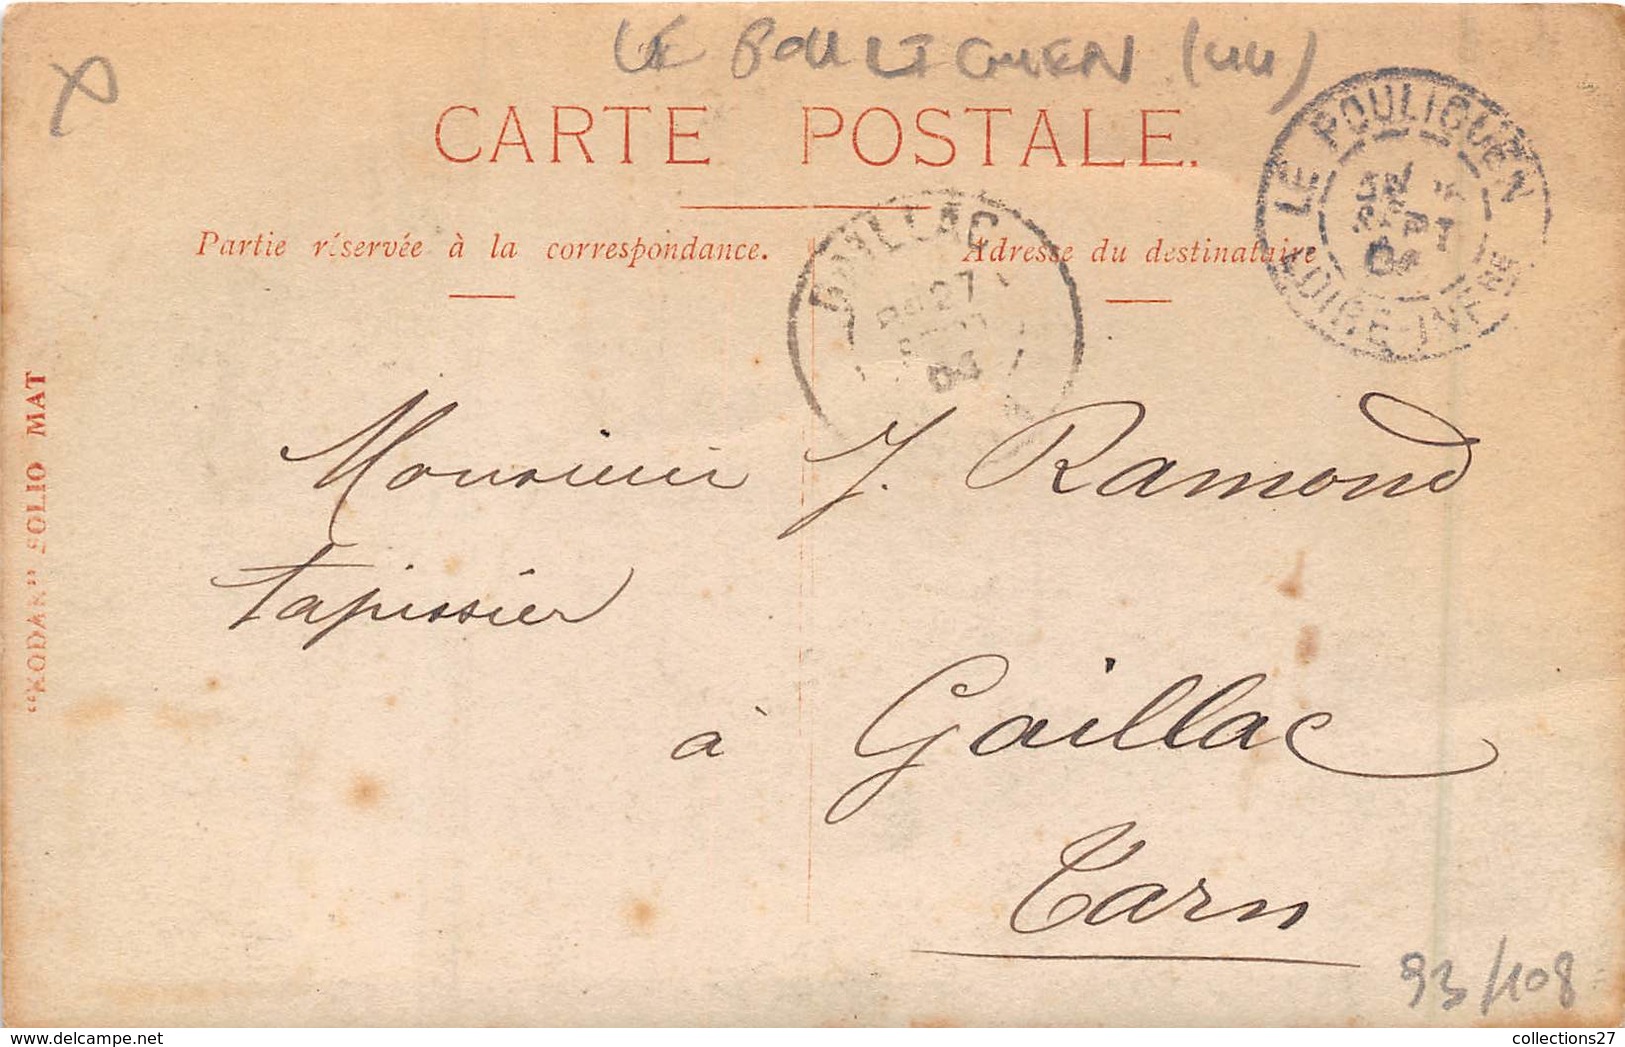 LE POULIGUEN (44)
CARTE POSTALE.
LE POULIGUEN
SEPT
04
LOIRE-INFRE
GAILLAC
27
04
Partie réservée à la correspondance.
Adresse du destinataire
"KODAK" SOLIO MAT
Monsieur J. Ramond
tapissier
à Gaillac
Tarn
93/108
collections27